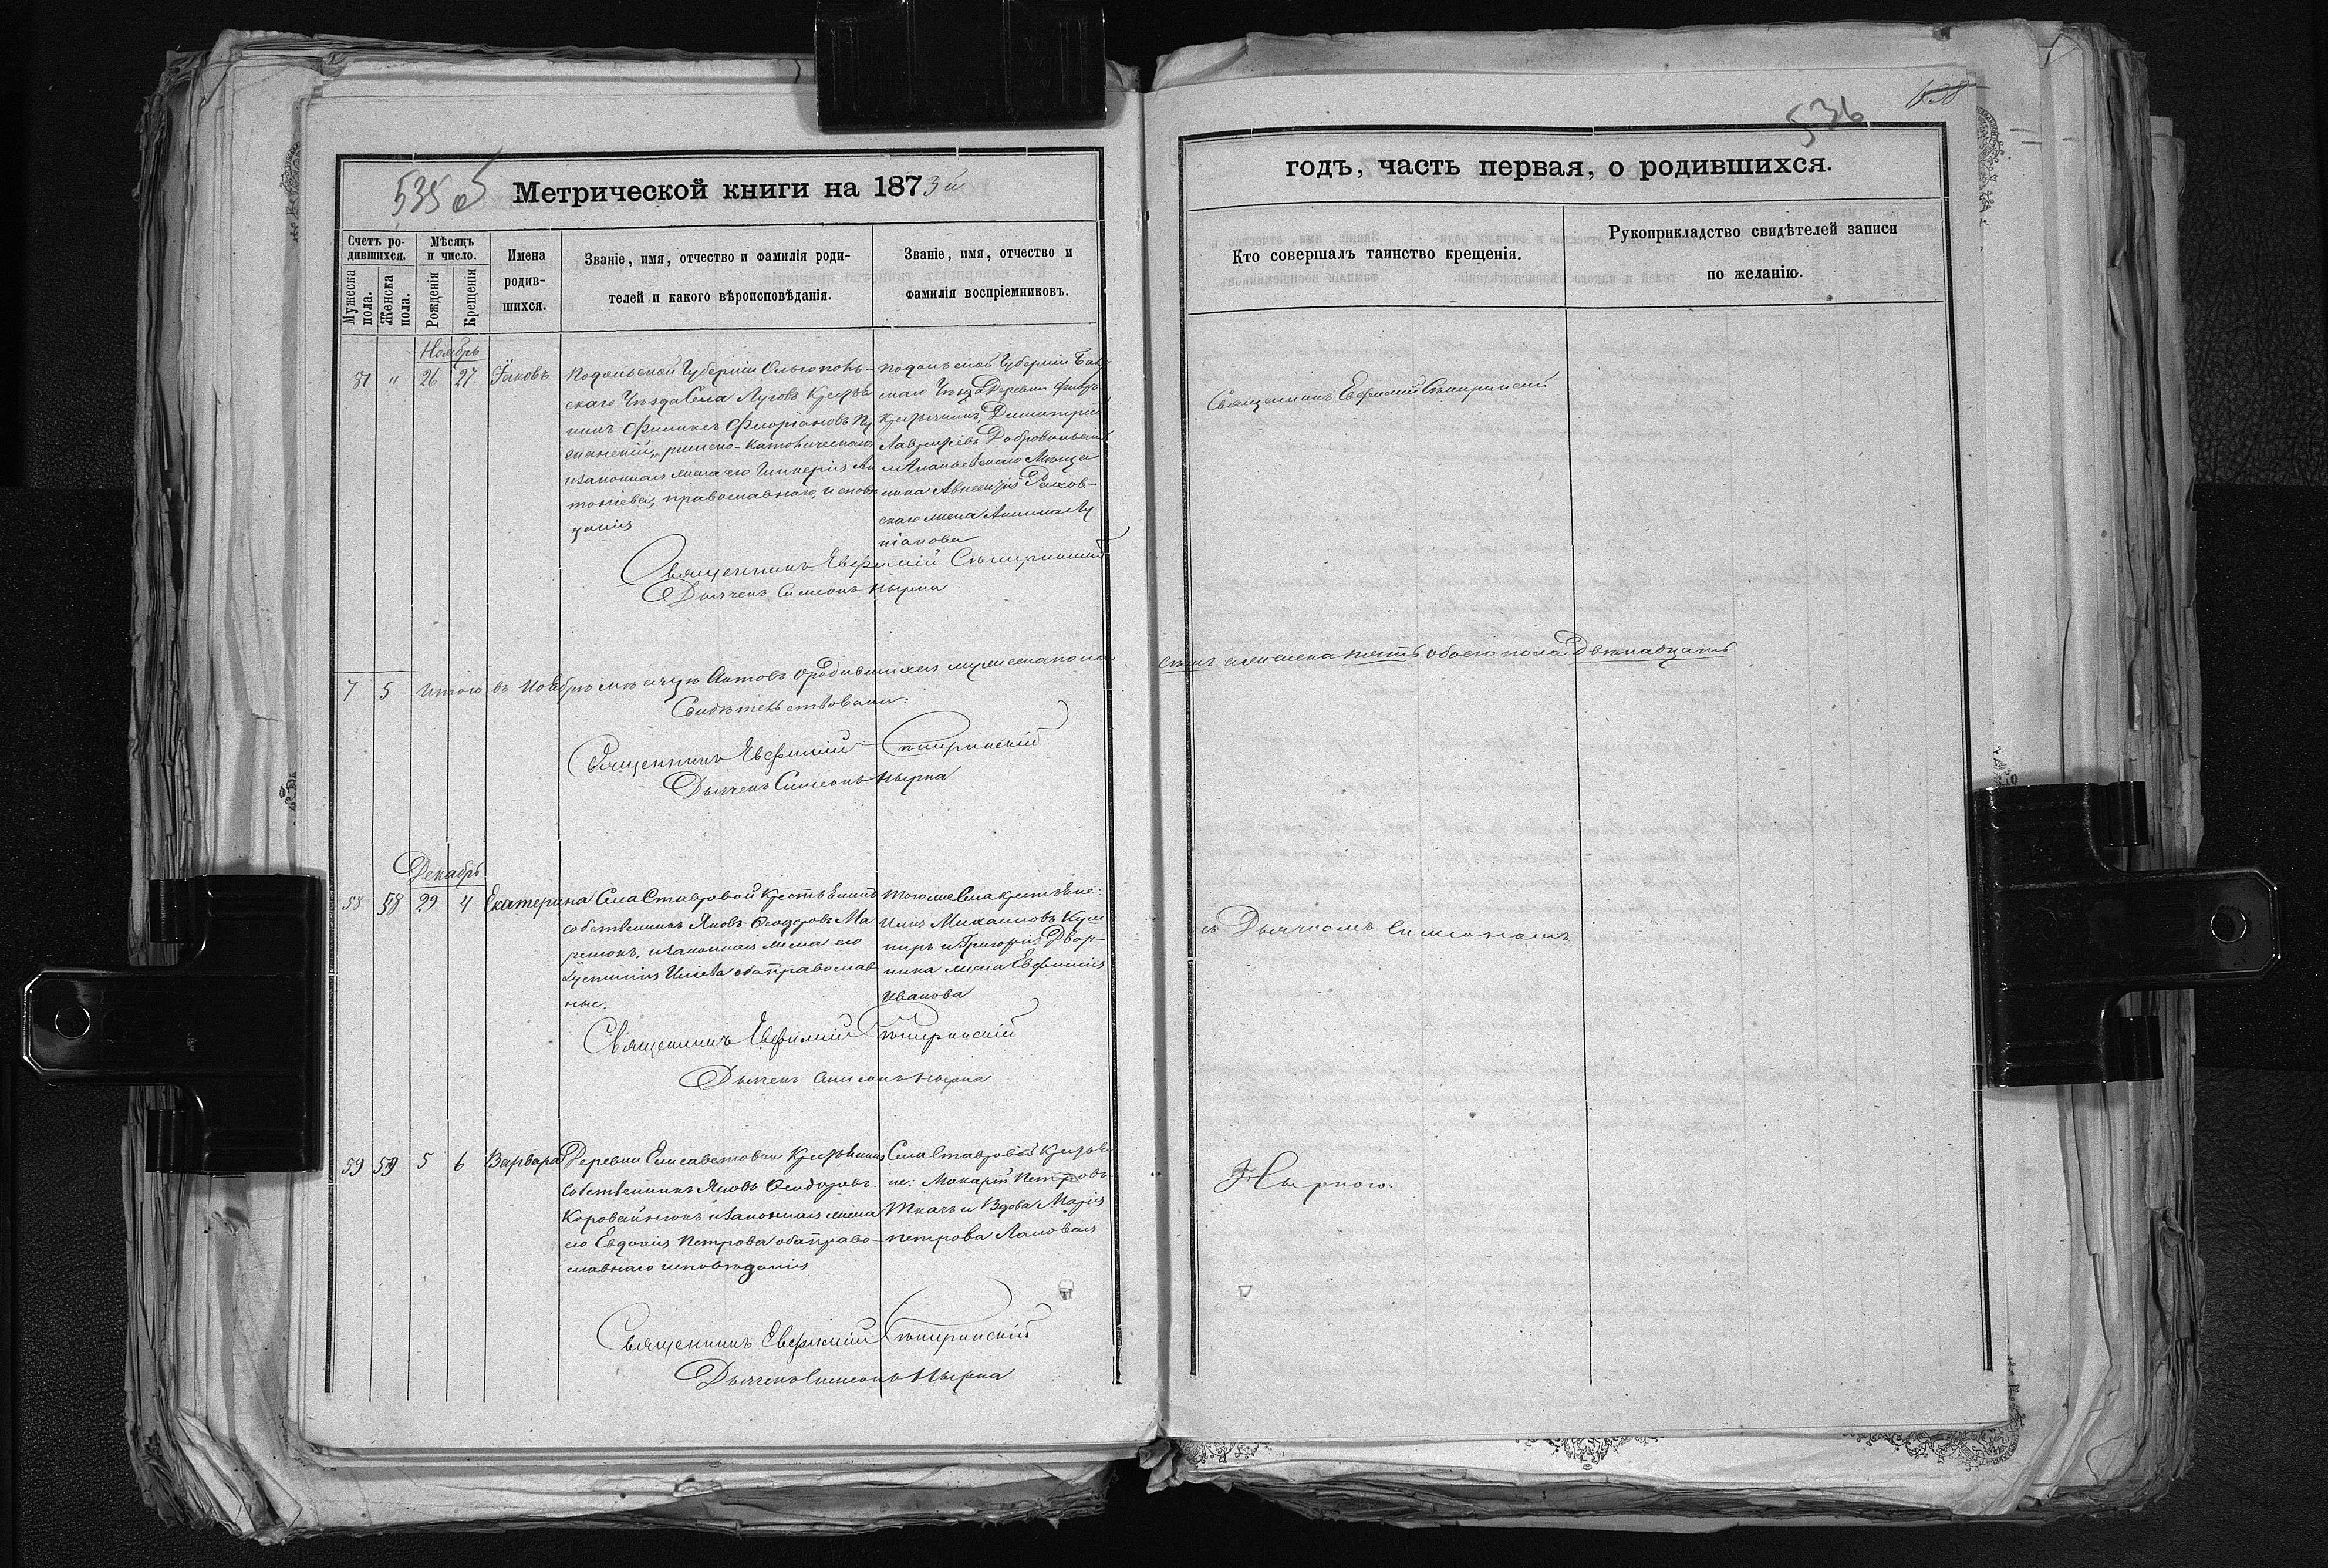 535 об
Метрической книги на 1873й
Счетъ ро-
дившихся.
Мѣсяцъ
и число.
Мужеска
пола.
Женска
пола.
Рожденія
Крещенія
Имена
родив-
шихся.
Званіе, имя, отчество и фамилія роди-
телей и какого вѣроисповѣданія.
Званіе, имя, отчество и
фамилія воспріемниковъ.
Ноябрь
81 " 26 27 Іаковъ
Подольской Губерніи Ольгополь-
скаго Уѣзда Села Луговъ Крестья
нинъ Филиксъ Флоріановъ
римско-католическаго,
и законная жена его Гликерія Ан
тоніева, православнаго исповѣ
данія
Подольской Губерніи
Уѣзда Деревни
Крестьянинъ Димитрій
Лаврентіевъ Добровольскій
и Ананьевскаго Мѣща
нина Авксентія Рахов-
скаго жена Акилина Лу
кіанова
Священникъ Евфимій
Дьячекъ Симеонъ Нырка
7 5 Итого въ Ноябрѣ мѣсяцѣ Актовъ о родившихся мужеска пола
Свидѣтельствовали:
Священникъ Евфимій
Дьячекъ Симеонъ Нырка
Декабрь
58 58 29 4 Екатерина
Села Ставровой Крестьянинъ
собственникъ Яковъ Ѳеодоровъ Ма
ренюкъ, и законная жена его
Іустинія Ильева оба православ
ные.
Того же Села крестьяне:
Михаиловъ
и Григорія Двор-
ника жена Евфимія
Иванова
Священникъ Евфимій
Дьячекъ Симеонъ Нырка
59 59 5 6 Варвара
Деревни Елисаветовки Крестьянинъ
Собственникъ Яковъ Ѳеодоровъ
Коровайнюкъ и законная жена
его Евдокія Петрова оба право-
славнаго исповѣданія
Села Ставровой Крестья
не: Макарій Петровъ
Ткачъ и Вдова Марія
Петрова Лановая
Священникъ Евфимій
Дьячекъ Симеонъ Нырка
536
годъ, часть первая, о родившихся.
Кто совершалъ таинство крещенія.
Рукоприкладство свидѣтелей записи
по желанію.
Священникъ Евфимій
семь женска пять обоего пола Двѣнадцать
съ Дьячкомъ Симеономъ
Ныркою.